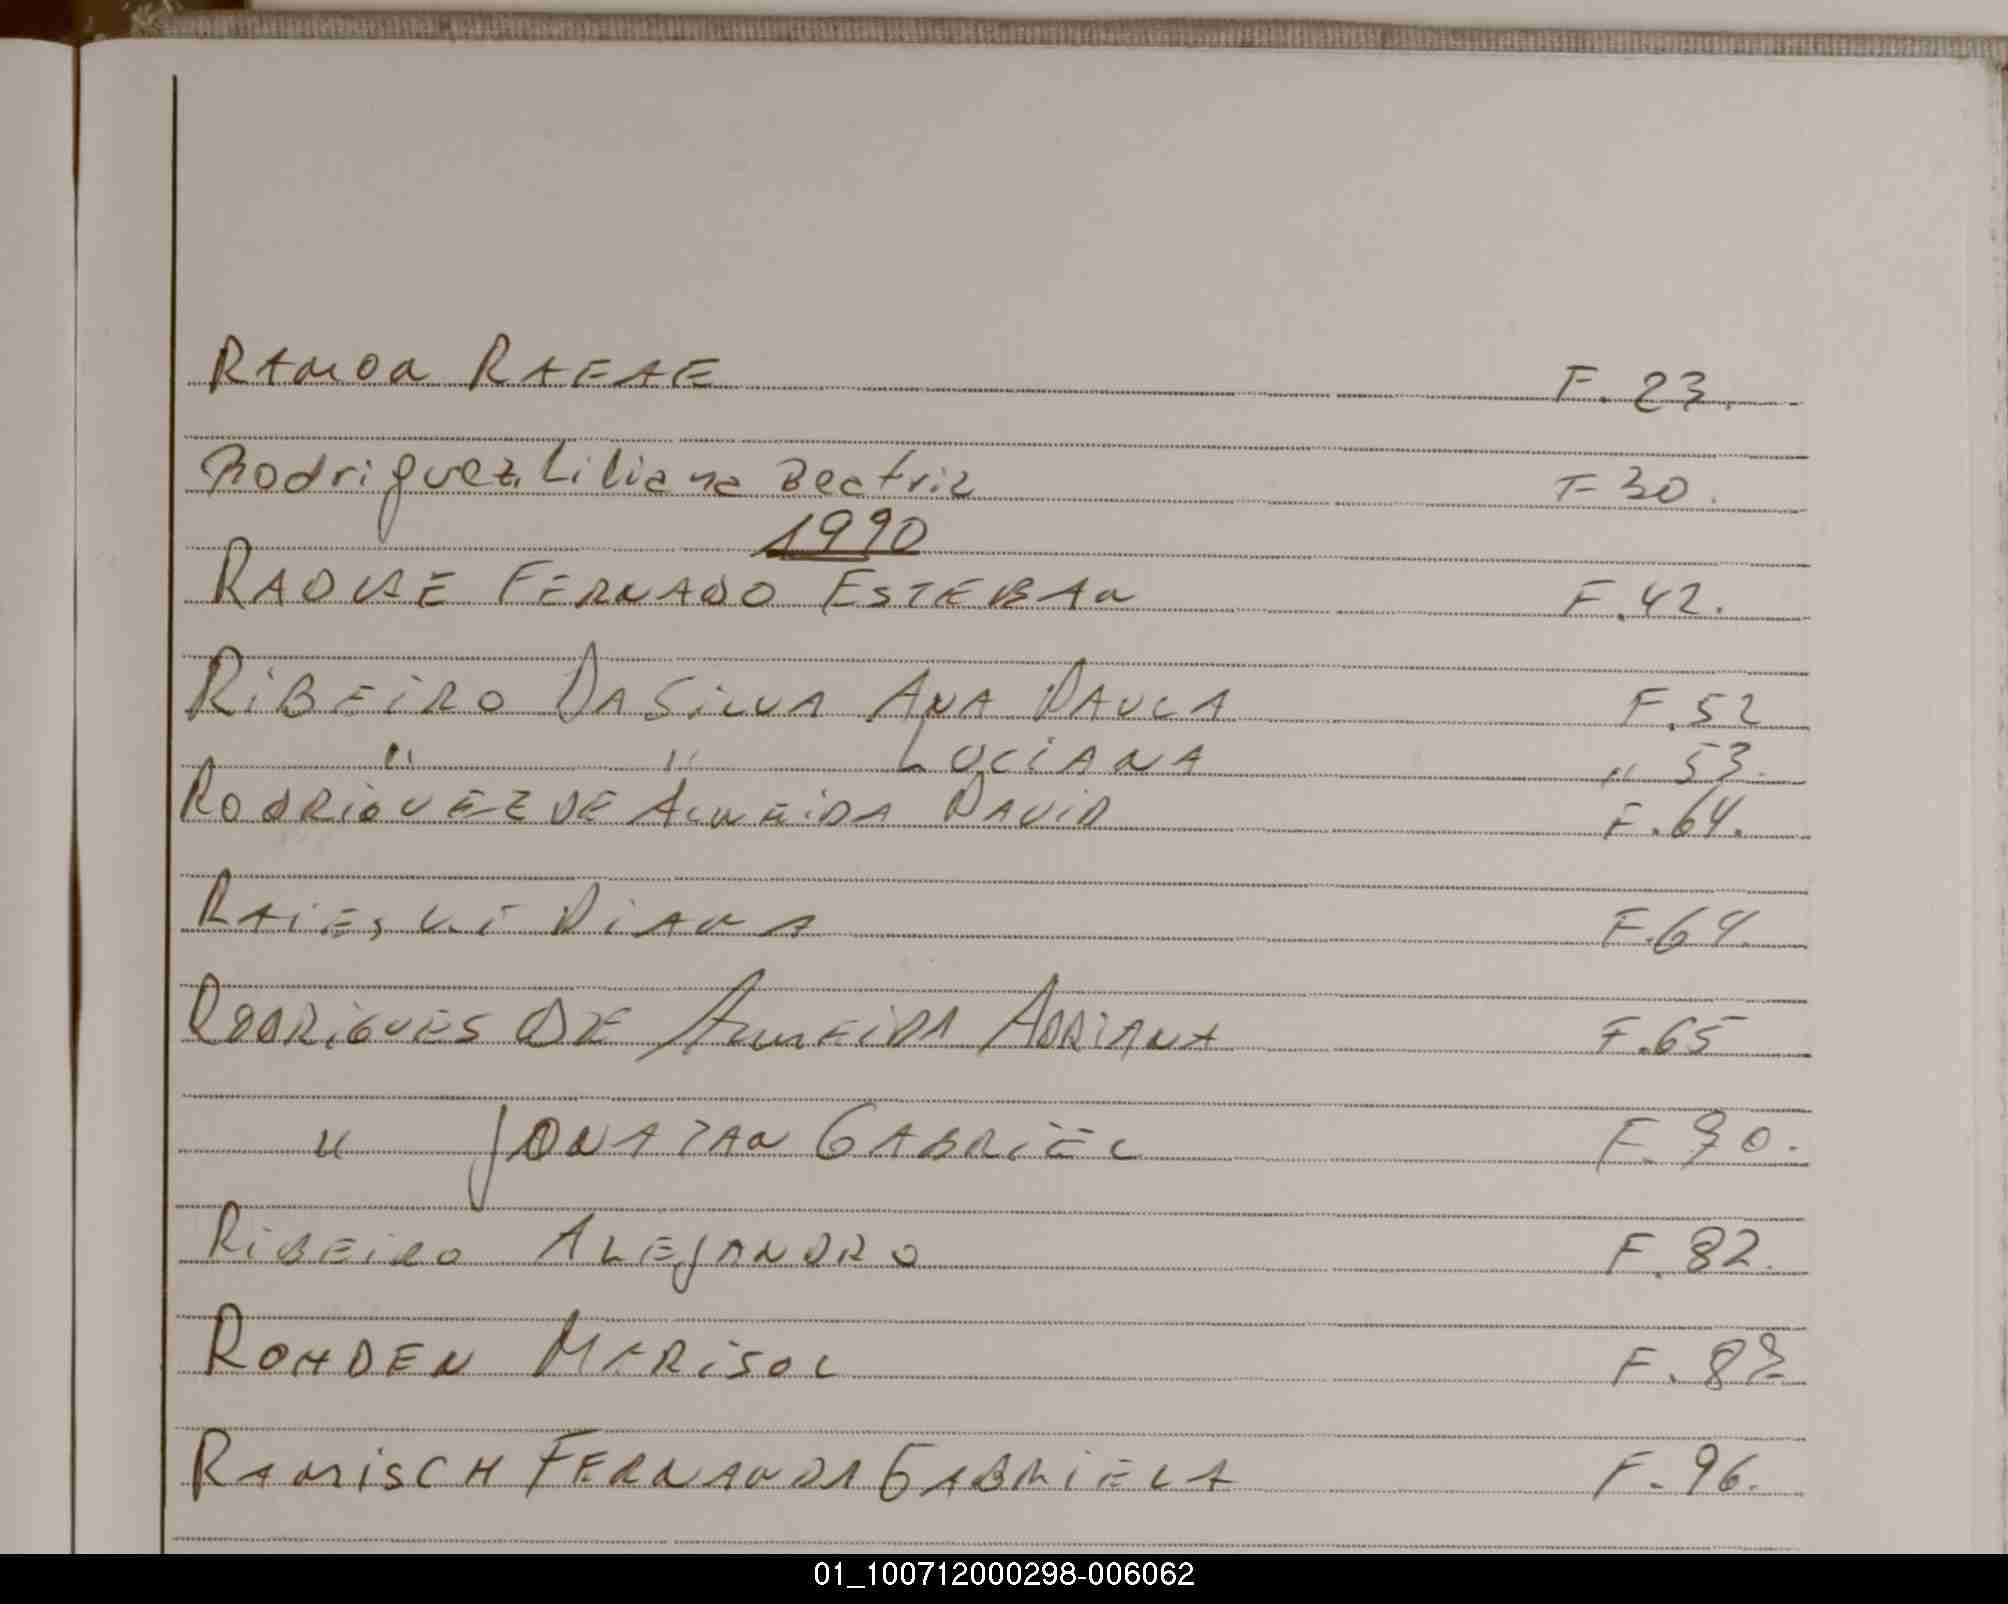 RAMON RAFAE F. 23.
Rodriguez, Liliana Beatriz F 30.
1990
RADUSE FERNADO ESTEBAN F. 42.
RIBEIRO DA SILVA ANA PAULA F. 52
" " LUCIANA " 53.
RODRIGUEZ DE ALMEIDA DAVID F. 64.
DIANA F. 64.
RODRIGUES DE ALMEIDA ADRIANA F. 65
" JONATAN GABRIEL F. 70.
RIBEIRO ALEJANDRO F. 82.
ROHDEN MARISOL F. 87.
RAMISCH FERNANDA GABRIELA F. 96.
01_100712000298-006062